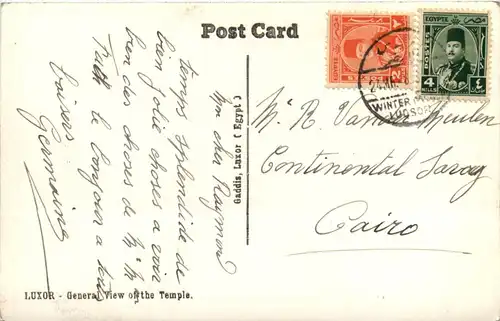 Post Card
EGYPTE
POSTES
4
MILLS
WINTER
LOUQSOR
Mon cher Raymond
temps splendide de
bien jolie choses a voir
bien de choses de
le bonjour a tous
baisers
Germaine
Gaddis, Luxor (Egypt)
Mr R. Vander Meulen
Continental Savoy
Cairo
LUXOR - General View of the Temple.